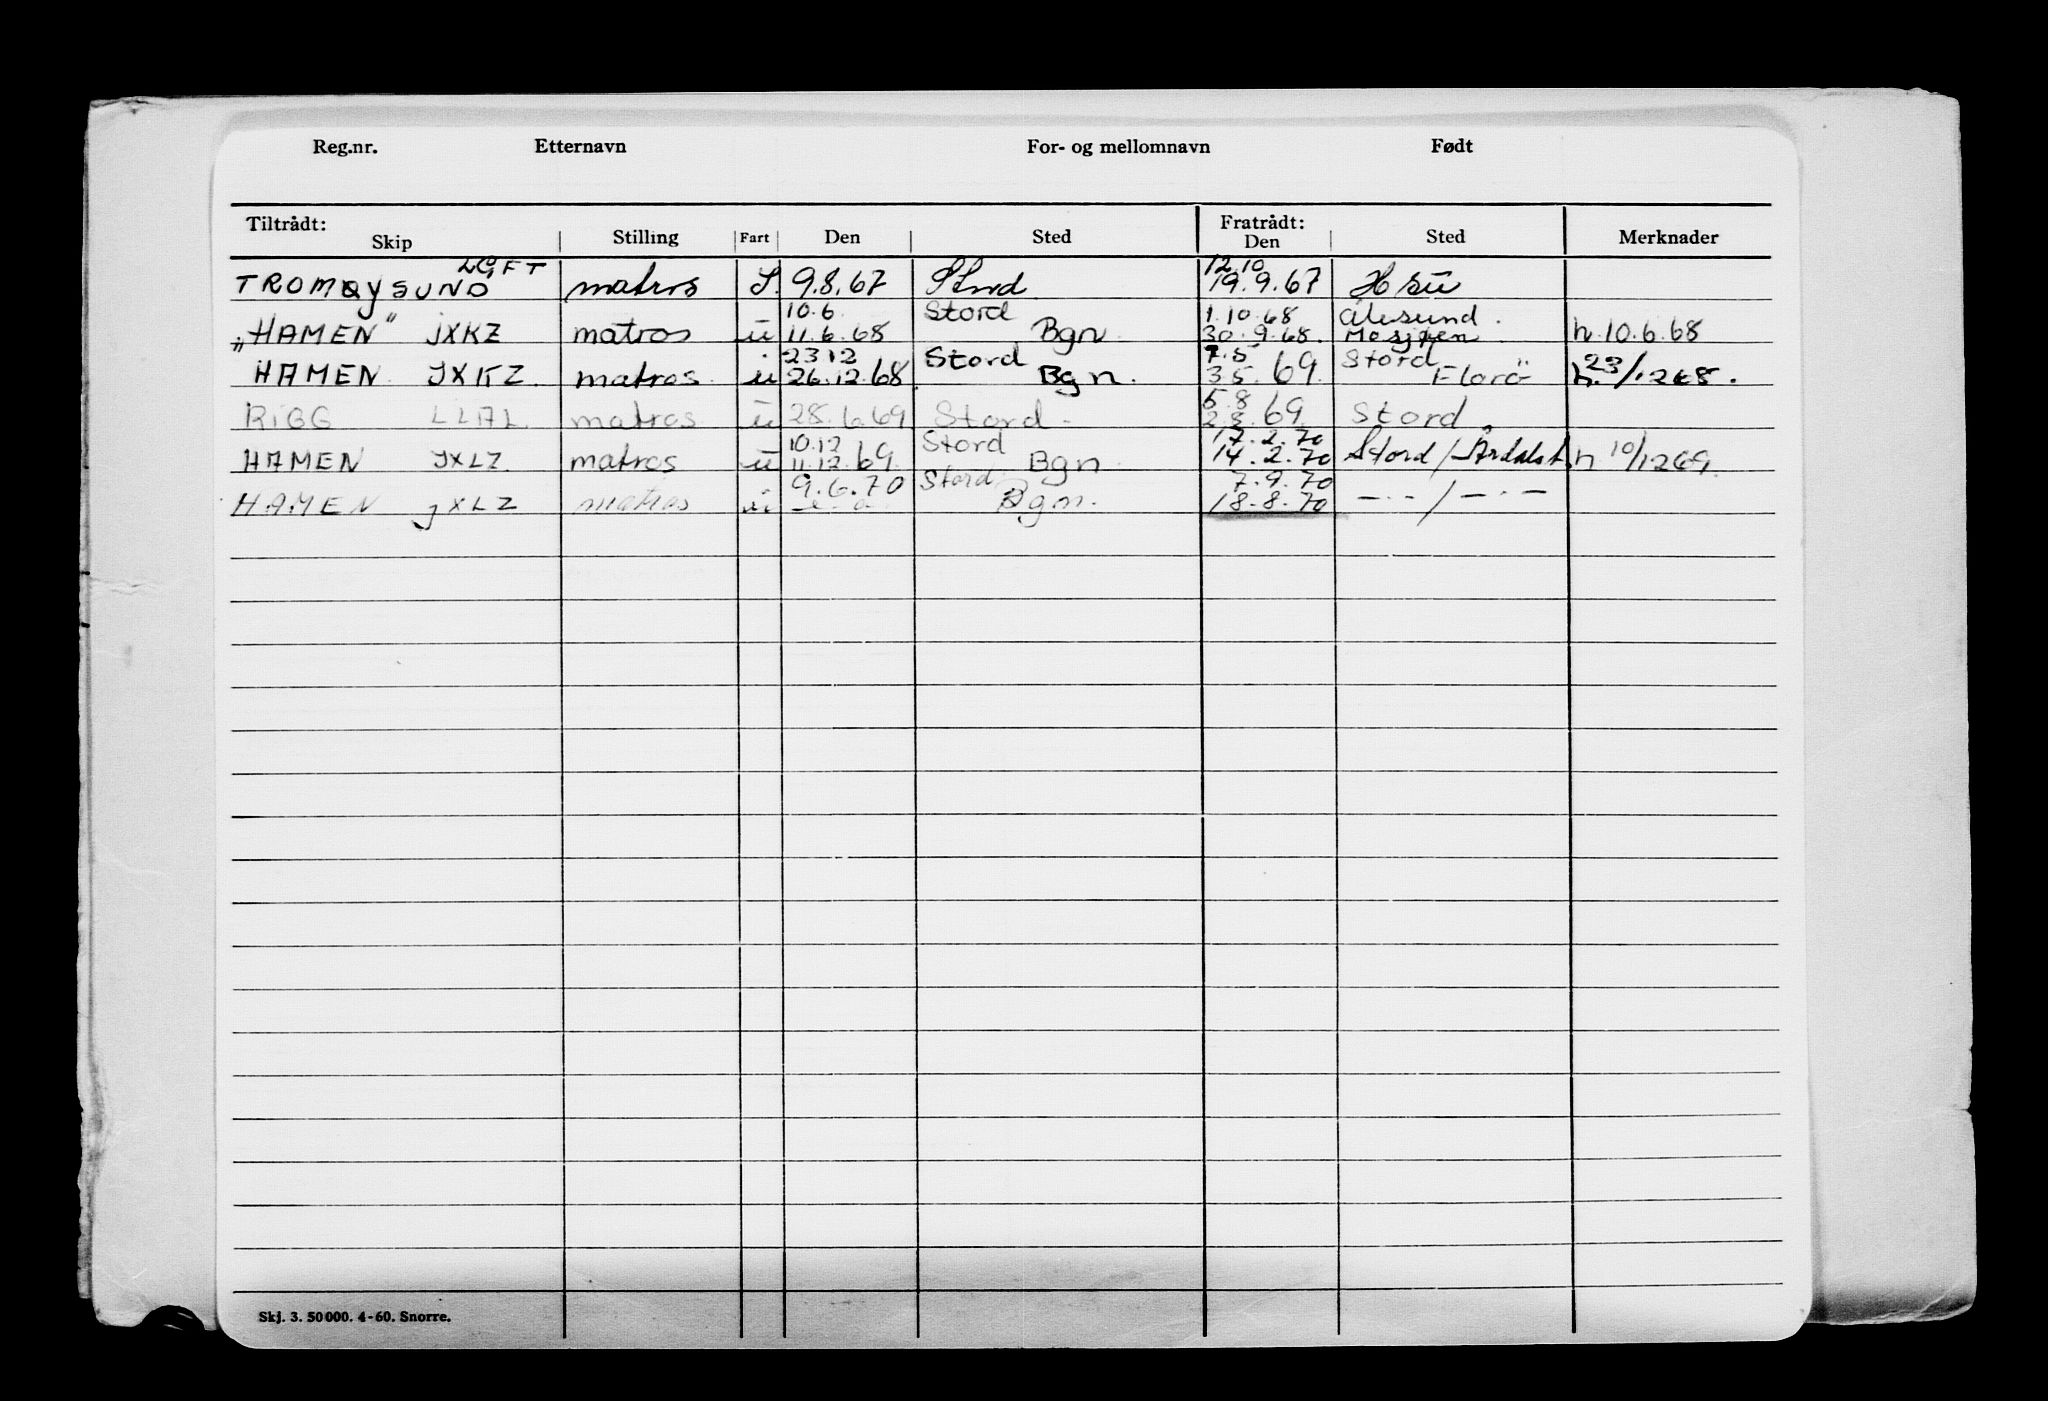 Reg.nr. Etternavn For- og mellomnavn Født
Tiltrådt: Fratrådt:
Skip Stilling Fart Den Sted Den Sted Merknader
LGFT 12.10
TROMØYSUND matros S. 9.8.67 Stord 19.9.67
10.6. Stord 1.10.68 Ålesund.
"HAMEN" JXKZ matros u 11.6.68 Bgn. 30.9.68. Mosjøen h.10.6.68
23 12 Stord 7.5 Stord
HAMEN JXKZ. matros u 26.12.68 Bgn. 3.5.69. Florö h. 23/1268.
5.8
RIGG LLAL. matros u 28.6.69 Stord. 2.8.69 Stord
10.12 Stord 17.2.70
HAMEN JXLZ. matros u 11.12.69. Bgn 14.2.70 Stord/Årdalst. h 10/1269.
9.6.70 Stord 7.9.70
HAMEN JXLZ matros u Bgn. 18.8.70 —··—/—·—
Skj. 3. 50000. 4-60. Snorre.